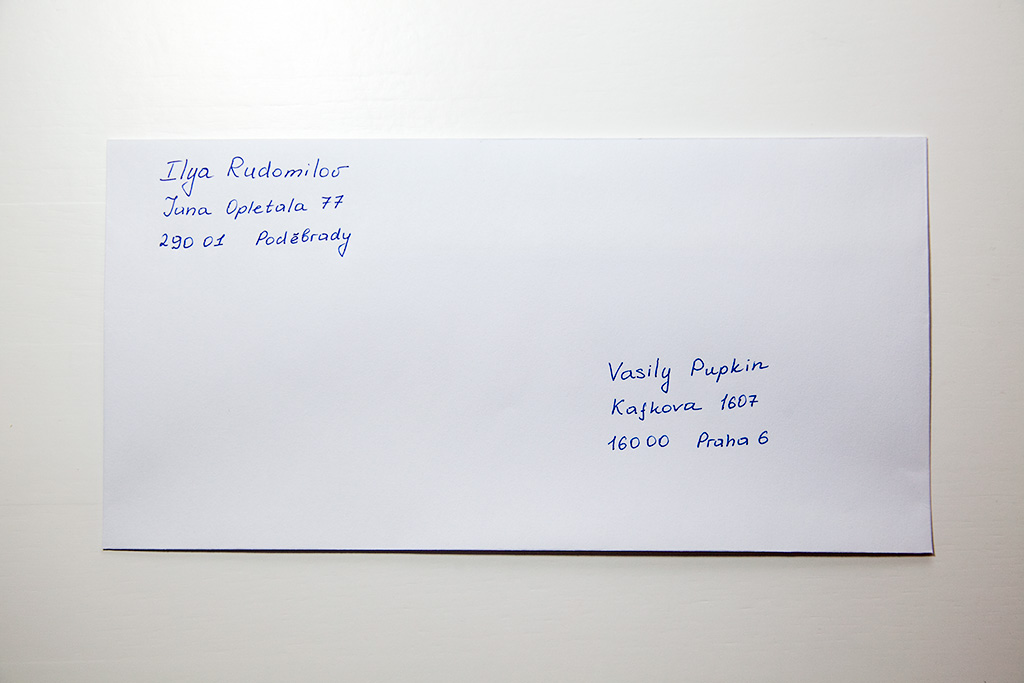 Ilya Rudomilov
Jana Opletala 77
290 01 Poděbrady
Vasily Pupkin
Kafkova 1607
160 00 Praha 6